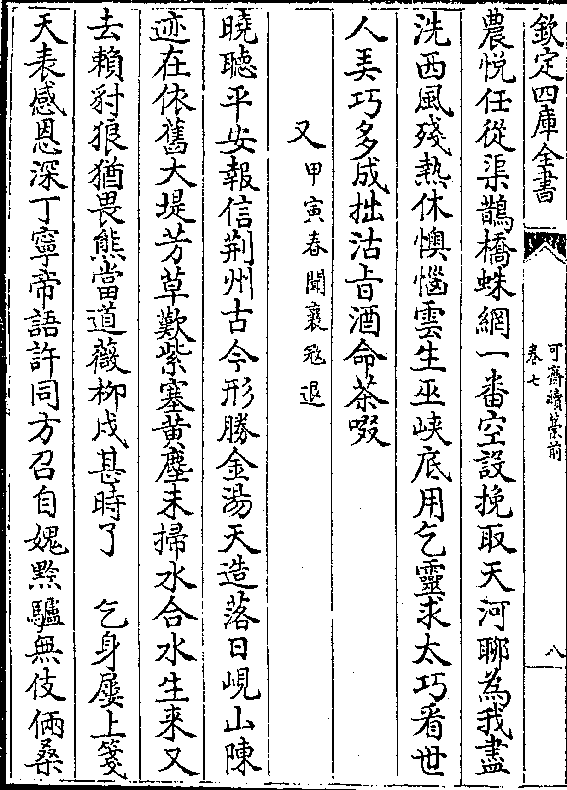 欽定四庫全書
可齋續藁前
卷七
八
農悅任從渠鵲橋蛛網一番空設挽取天河聊為我盡
洗西風殘熱休懊惱雲生巫峽底用乞靈求太巧看世
人美巧多成拙沽旨酒命茶啜
又甲寅春聞襄冦退
曉聴平安報信荆州古今形勝金湯天造落日峴山陳
迹在依舊大堤芳草歎紫塞黄塵未掃水合水生来又
去賴豺狼猶畏熊當道薇柳戍甚時了　乞身屡上箋
天表感恩深丁寧帝語許同方召自媿黔驢無伎倆桑